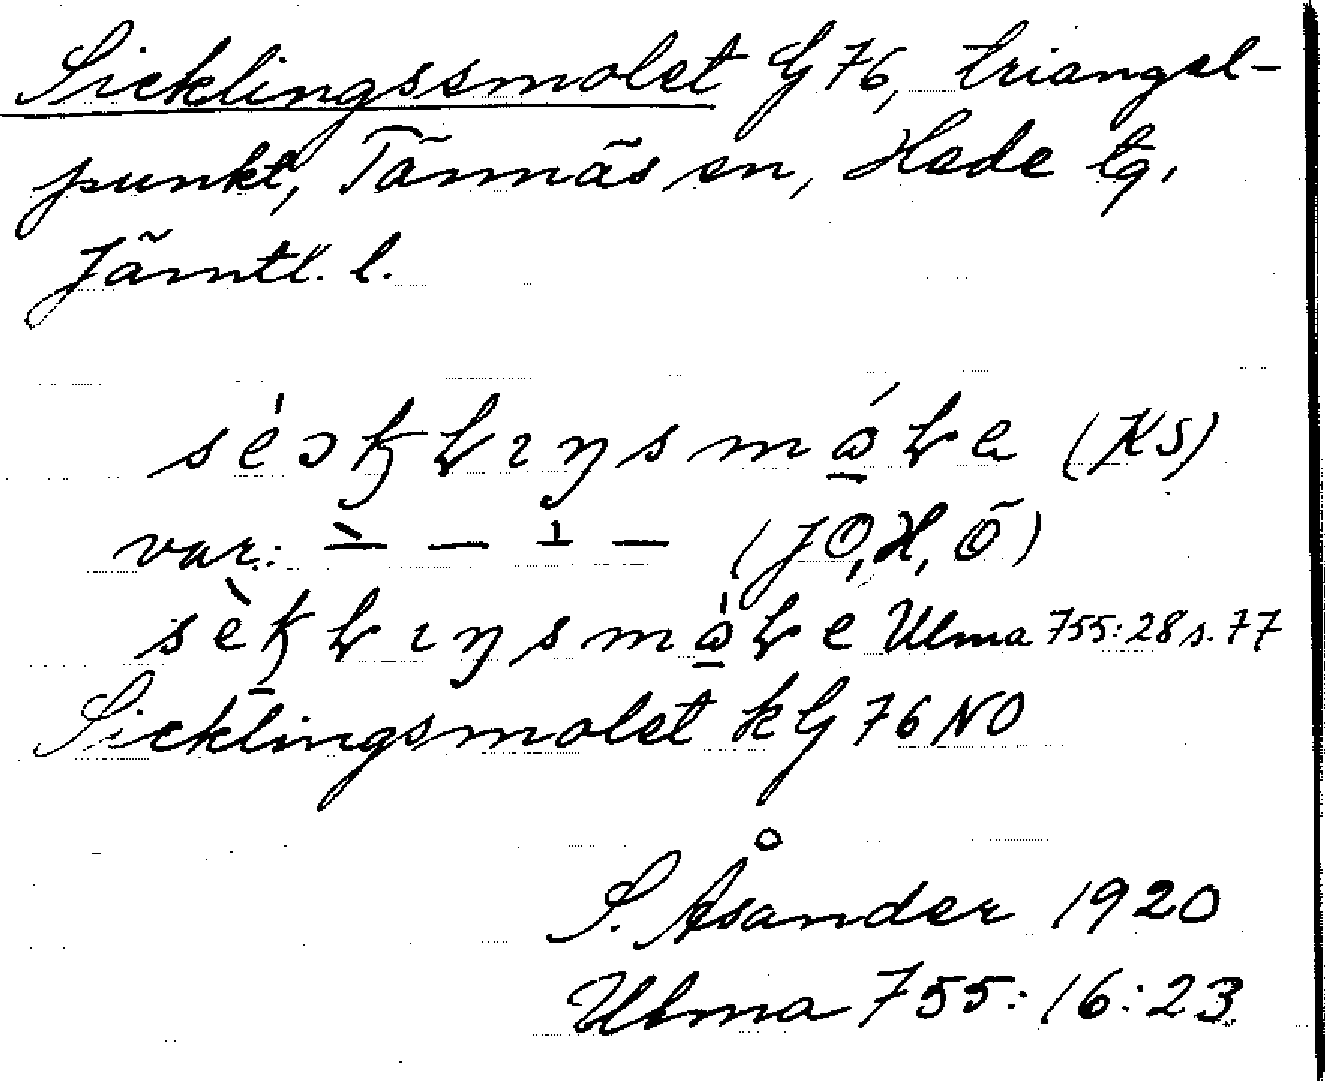 Sicklingssmolet G 76, triangel-
punkt, Tännäs sn, Hede tg,
Jämtl. l.
(KS)
var.: (JO, H, Ö)
Ulma 755:28 s. 77
Sicklingsmolet k G 76 NO
S. Åsander 1920
Ulma 755:16:23